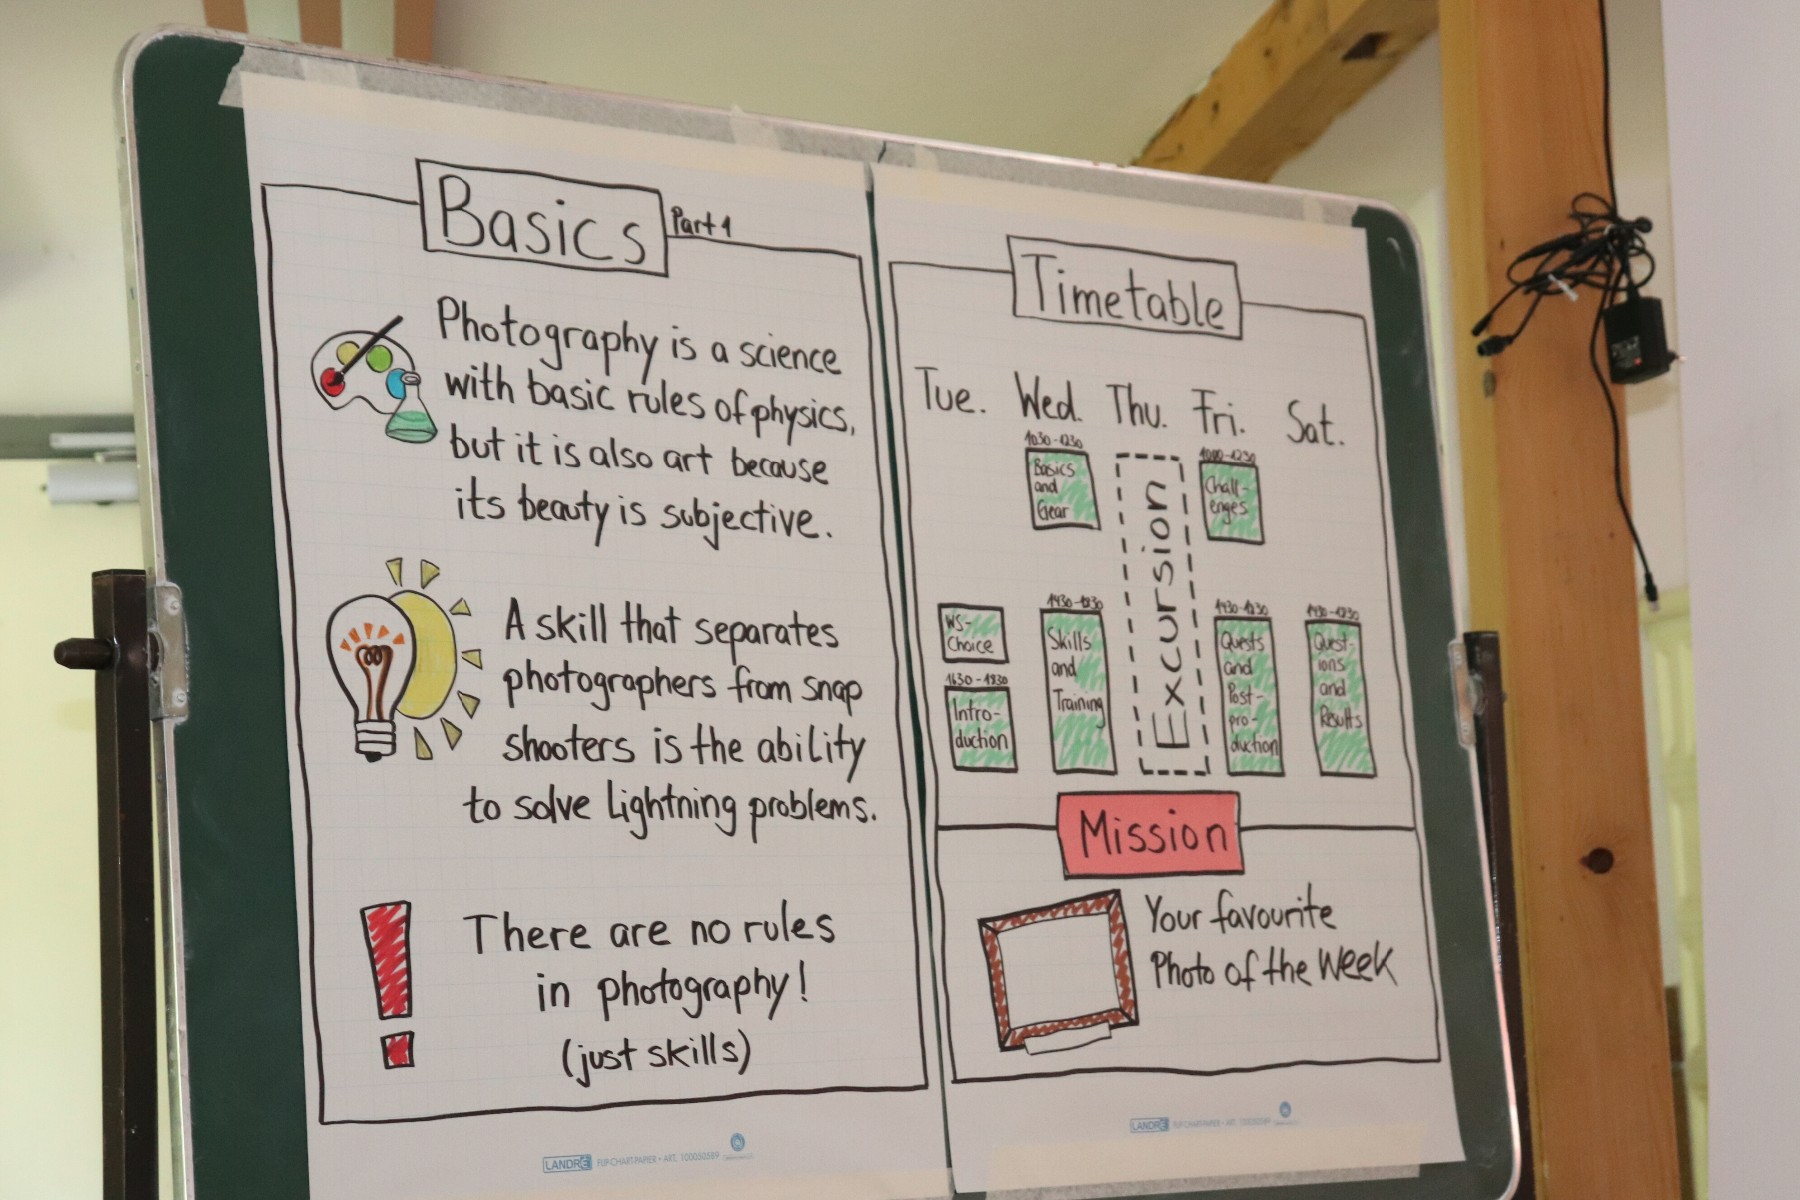 Basics
Part 1
Photography is a science
with basic rules of physics,
but it is also art because
its beauty is subjective.
A skill that separates
photographers from snap
shooters is the ability
to solve lightning problems.
There are no rules
in photography!
(just skills)
LANDRÉ FLIP-CHART-PAPIER • ART. 100050589
Timetable
Tue. Wed. Thu. Fri. Sat.
1030-1230
Basics
and
Gear
Excursion
1000-1230
Chall-
enges
WS-
Choice
1630-1830
Intro-
duction
1430-1830
Skills
and
Training
1430-1830
Quests
and
Post-
pro-
duction
1430-1830
Quest-
ions
and
Results
Mission
Your favourite
Photo of the Week
LANDRÉ FLIP-CHART-PAPIER • ART. 100050589